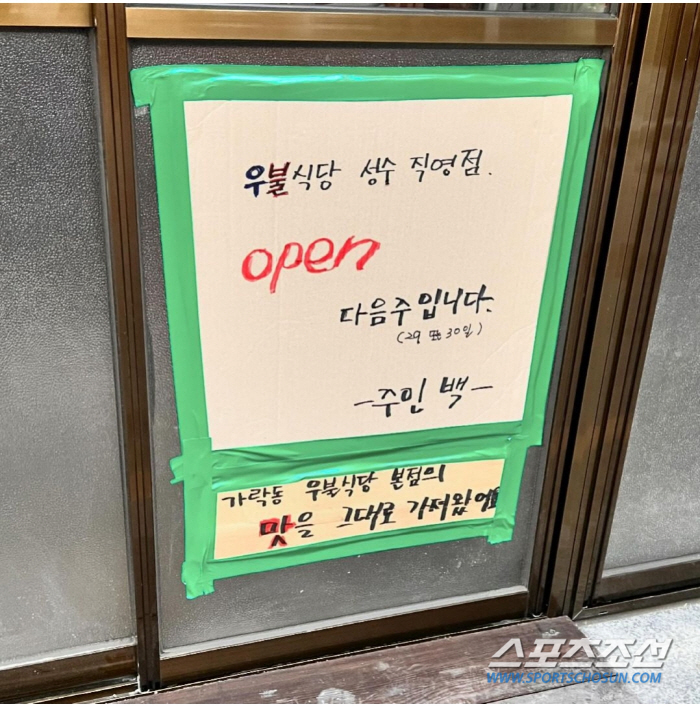 우불식당 성수 직영점.
open
다음주 입니다.
(29 또 30일)
-주인 백-
가락동 우불식당 본점의
맛을 그대로 가져왔어요
스포츠조선
WWW.SPORTSCHOSUN.COM